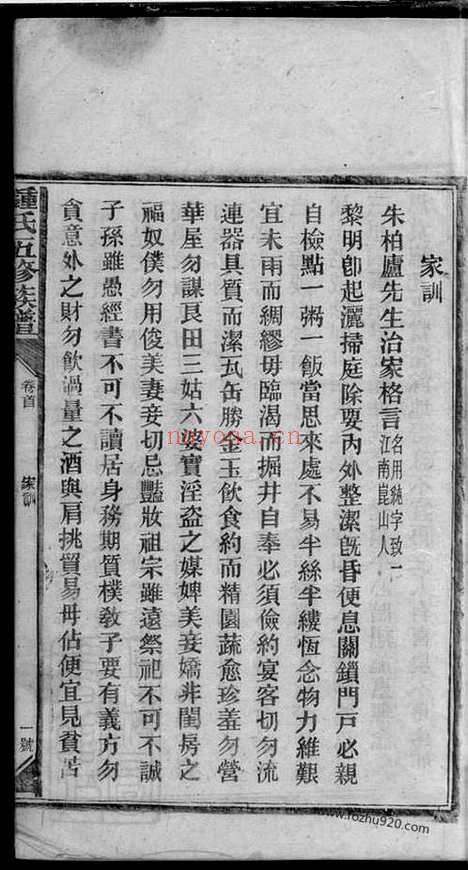 家訓
朱柏廬先生治家格言名用純字致一江南崑山人
黎明卽起灑掃庭除要內外整潔旣昏便息關鎖門戶必親
自檢點一粥一飯當思來處不易半絲半縷恆念物力維艱
宜未雨而綢繆毋臨渴而掘井自奉必須儉約宴客切勿流
連器具質而潔瓦缶勝金玉飲食約而精園蔬愈珍羞勿營
華屋勿謀良田三姑六婆實淫盜之媒婢美妾嬌非閨房之
福奴僕勿用俊美妻妾切忌豔妝祖宗雖遠祭祀不可不誠
子孫雖愚經書不可不讀居身務期質樸敎子要有義方勿
貪意外之財勿飮過量之酒與肩挑貿易毋佔便宜見貧苦
鍾氏五修族譜
卷首
家訓
一號
nayona.cn
www.fozhu920.com